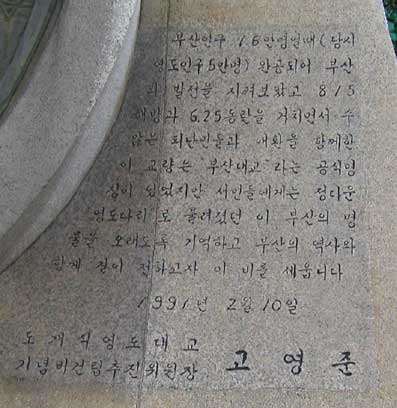 부산인구 16만명일때(당시
영도인구5만명) 완공되어 부산
의 발전을 지켜보았고 8/5
해방과 6.25동란을 거치면서 수
많은 피난민들과 애환을 함께한
이 교량은 "부산대교"라는 공식명
칭이 있었지만 서민들에게는 정다운
영도다리로 불려졌던 이 부산의 명
물을 오래도록 기억하고 부산의 역사와
함께 길이 전하고자 이 비를 세웁니다
1991년 2월 10일
도개식영도대교
기념비건립추진위원장 고영준